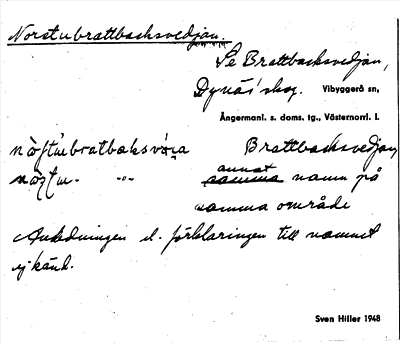 Norstubrattbacksvedjan.
Se Brattbacksvedjan,
Dynäs skog. Vibyggerå sn,
Ångermanl. s. doms. tg., Västernorrl. l.
Brattbacksvedjan
annat
samma namn på
samma område
Anledningen el. förklaringen till namnet
ej känd.
Sven Hiller 1948